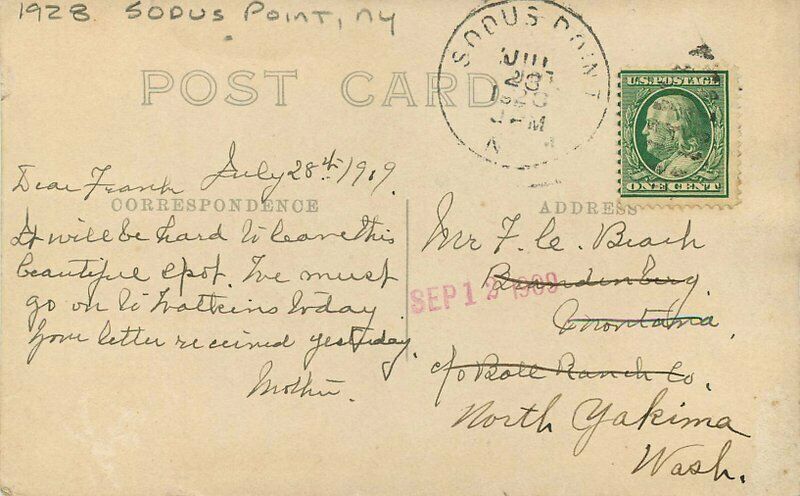 1928 SODUS POINT, NY
SODUS POINT
N
POST CARD
U.S. POSTAGE
ONE CENT
July 28th 1909.
Dear Frank
CORRESPONDENCE
It will be hard to leave this
beautiful spot. We must
go on to Watkins today
Your letter received yesterday.
Mother.
ADDRESS
Mr F. C. Beach
Brandenberg,
Montana,
c/o Ball Ranch Co.
North Yakima
Wash.
SEP 12 1909